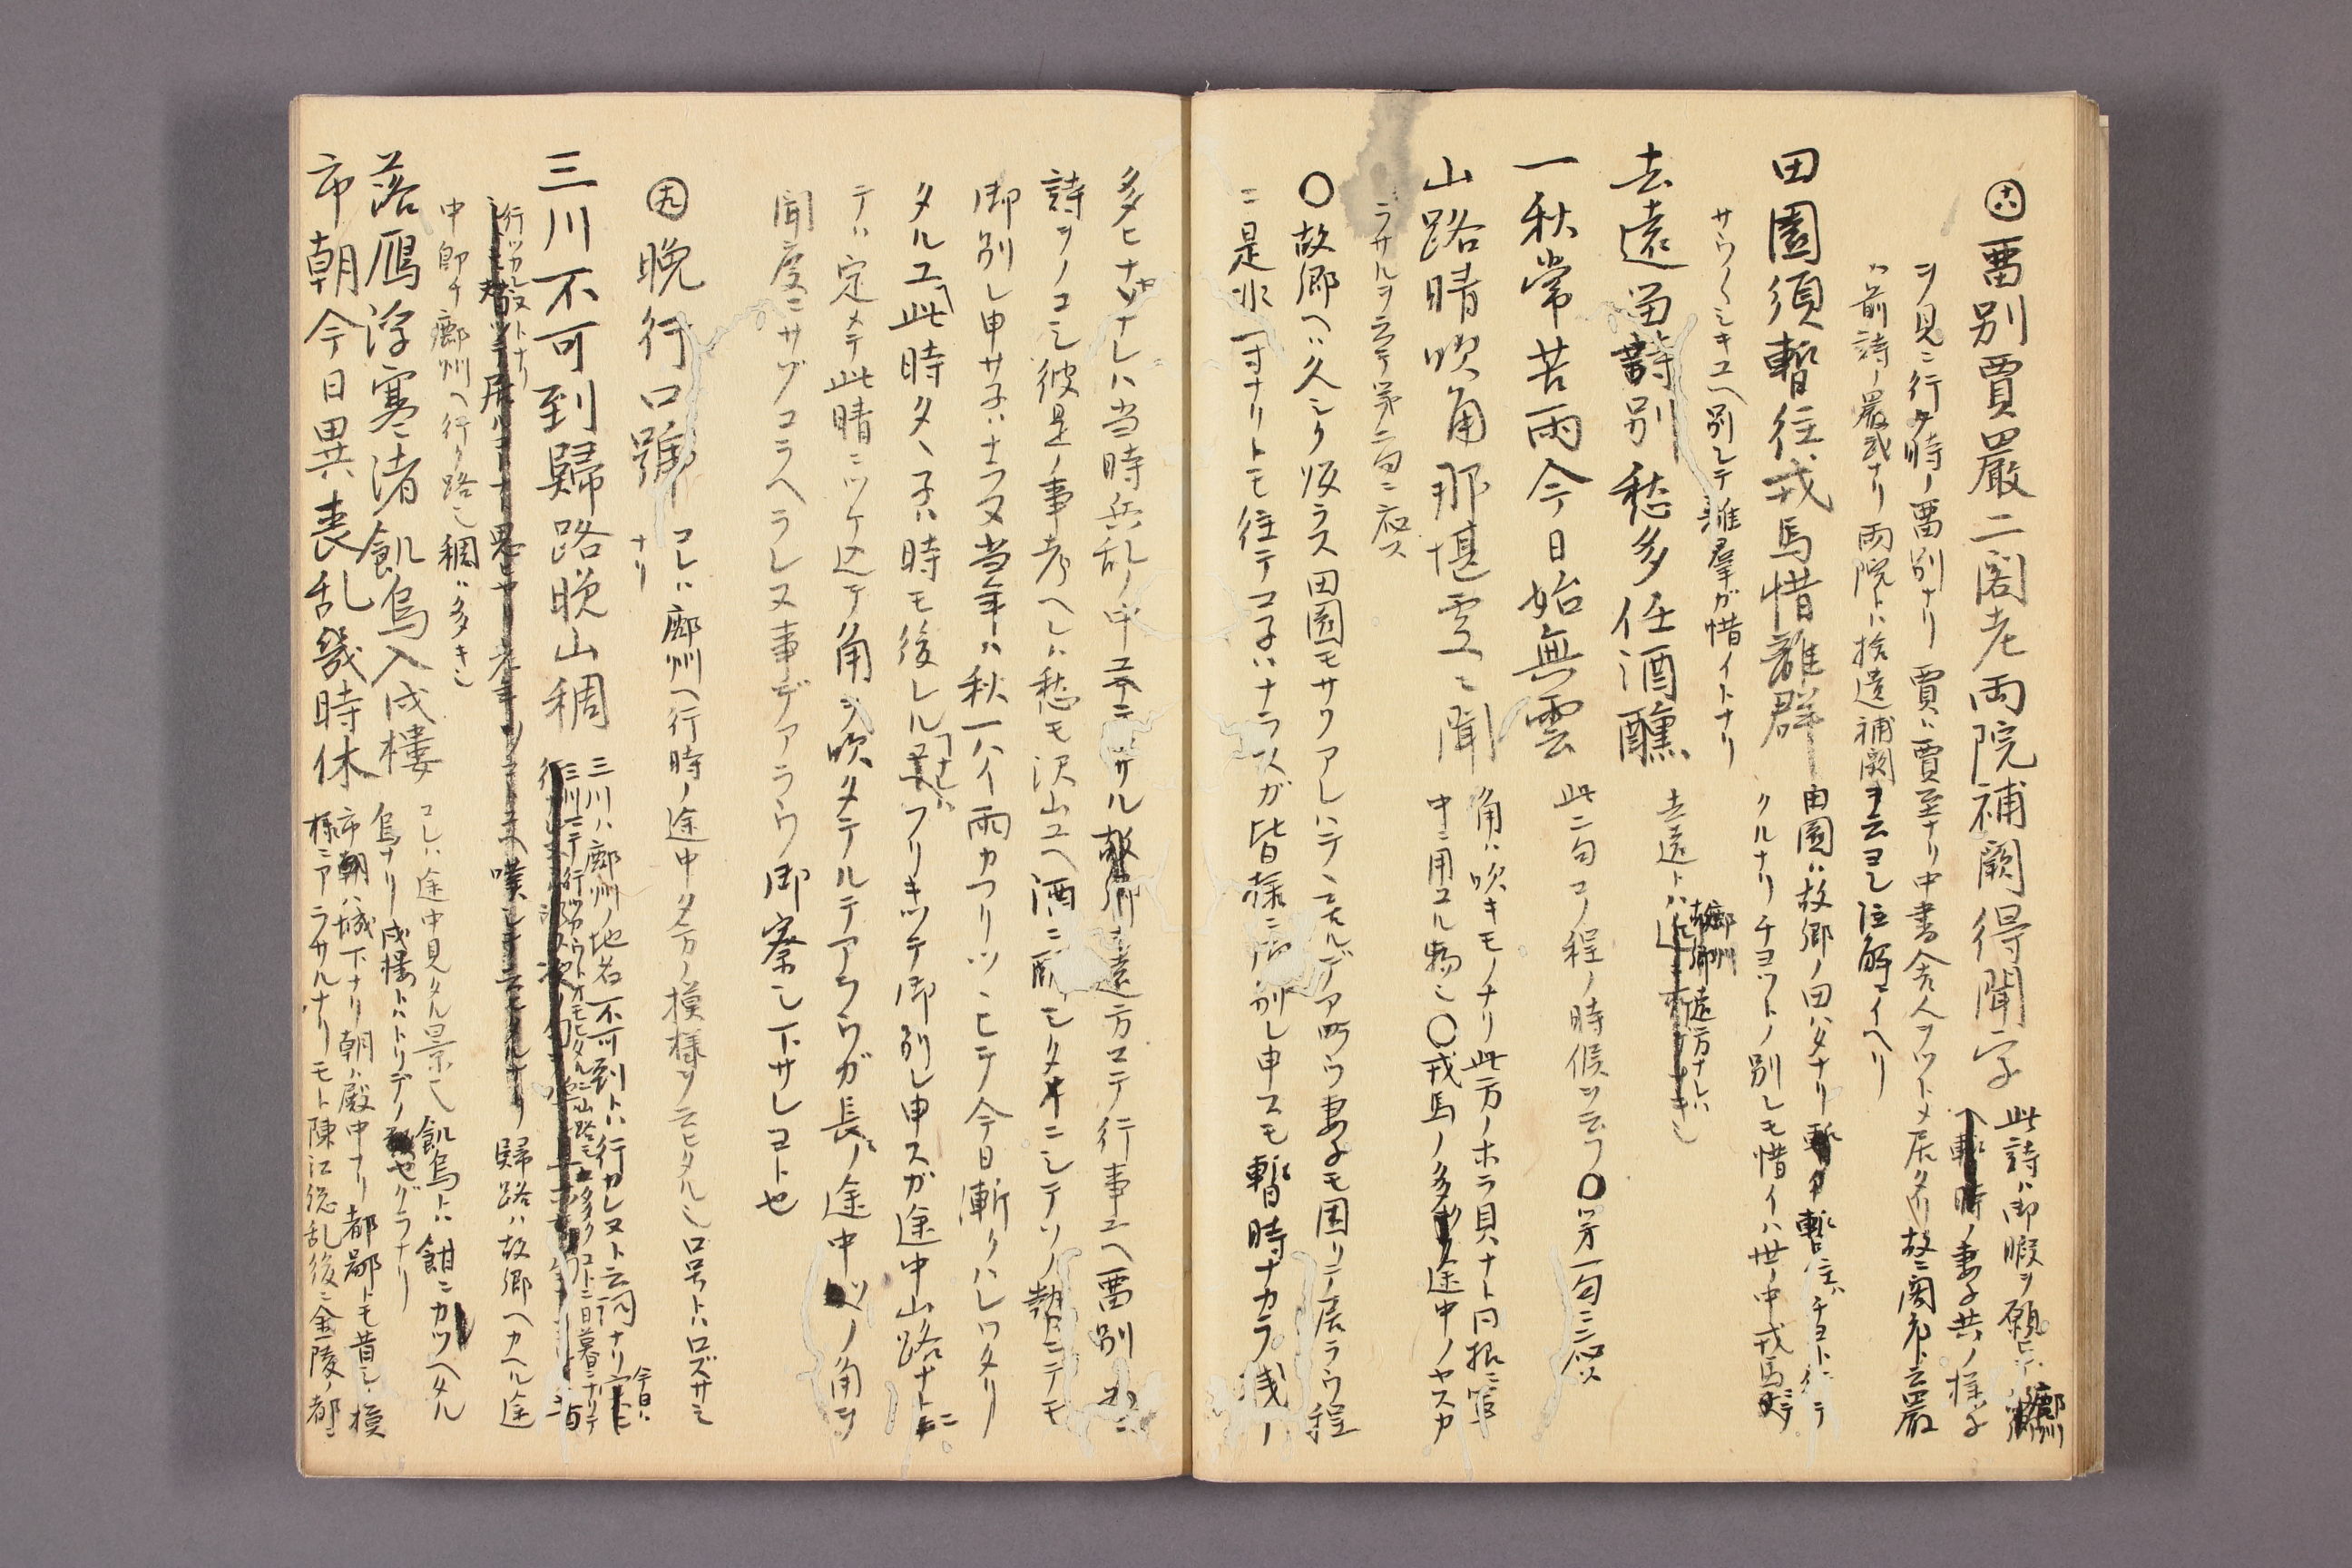 ㊅ 畱別賈嚴二閣老両院補闕得聞字 此詩ハ御暇ヲ願ヒテ鄜州
ヘ暫時ノ妻子共ノ様子
ヲ見ニ行タ時ノ畱別ナリ 賈ハ賈至ナリ中書舍人ヲツトメ居タリ故ニ閣老ト云嚴
ハ前詩ノ嚴武ナリ 両院トハ拾遺補闕ヲ云ヨシ註解ニイヘリ
田園須暫往戎馬惜離群 田園ハ故郷ノ田ハタナリ 暫往ハチヨト行テ
クルナリ チヨツトノ別レモ惜イハ世ノ中戎馬デ
サウ〳〵シキユヘ別レテ離羣ガ惜イトナリ
去遠畄詩別愁多任酒醺 去遠トハ鄜州遠方ナレハ
一秋常苦雨今日始無雲 此二句コノ程ノ時候ヲ云フ〇第一句ニ應ス
山路晴吹角那堪處〻聞 角ハ吹キモノナリ此方ノホラ貝ナト同
中ニ用ユル物也〇戎馬ノ多キ途中ノヤスカ
ラサルヲ云テ第二句ニ應ス
〇故郷ヘハ久シク皈ラス田園モサソアレハテヽ居ルデアロウ妻子モ困リテ居ラウ程
ニ是非一寸ナリトモ往テコ子ハナラヌガ皆様ニ御別レ申スモ暫時ナカラ残ノ
多ヒナセナレハ当時兵乱ノ中ユヘ 遠方エテ行事ユヘ畱別ニ
詩ヲノコシ彼是ノ事考ヘレハ愁モ沢山ユヘ酒ニ酔 シタキニシテソノ勢ニテモ
御別レ申サ子ハナラヌ当年ハ秋一ハイ雨カフリツヽヒテ今日漸クハレワタリ
タルユ此時タヽ子ハ時モ後レル フリキツテ御別レ申スガ途中山路ナトニ
テハ定メテ此晴ニツケ込テ角ヲ吹タテルテアラウガ長ノ途中 ノ角ヲ
聞度ニサゾコラヘラレヌ事デアラウ御察し下サレコト也
㊈ 晩行口號 コレハ鄜州ヘ行時ノ途中夕方ノ模様ヲ云ヒタルシ口号トハ口ズサミ
ナリ
三川不可到歸路晩山稠 三川ハ鄜州ノ地名不可到トハ行カレヌト云詞ナリ 今日ハ
三川ニテ行ツカウトオモヒタルニ山路モ多クコトニ日暮ニナリテ
行ツカレヌトナリ 歸路ハ故郷ヘカヘル途
中即チ鄜州ヘ行ク路也稠ハ多キ也
落鴈浮寒渚飢烏入戍樓 コレハ途中見タル景也 飢烏トハ餌ニカツヘタル
烏ナリ戍樓トハトリデノ ヤグラナリ
市朝今日異喪乱幾時休 市朝ハ城下ナリ朝ハ殿中ナリ都鄙トモ昔シノ模
様ニアラサルナリモト陳江総乱後ニ金陵ノ都